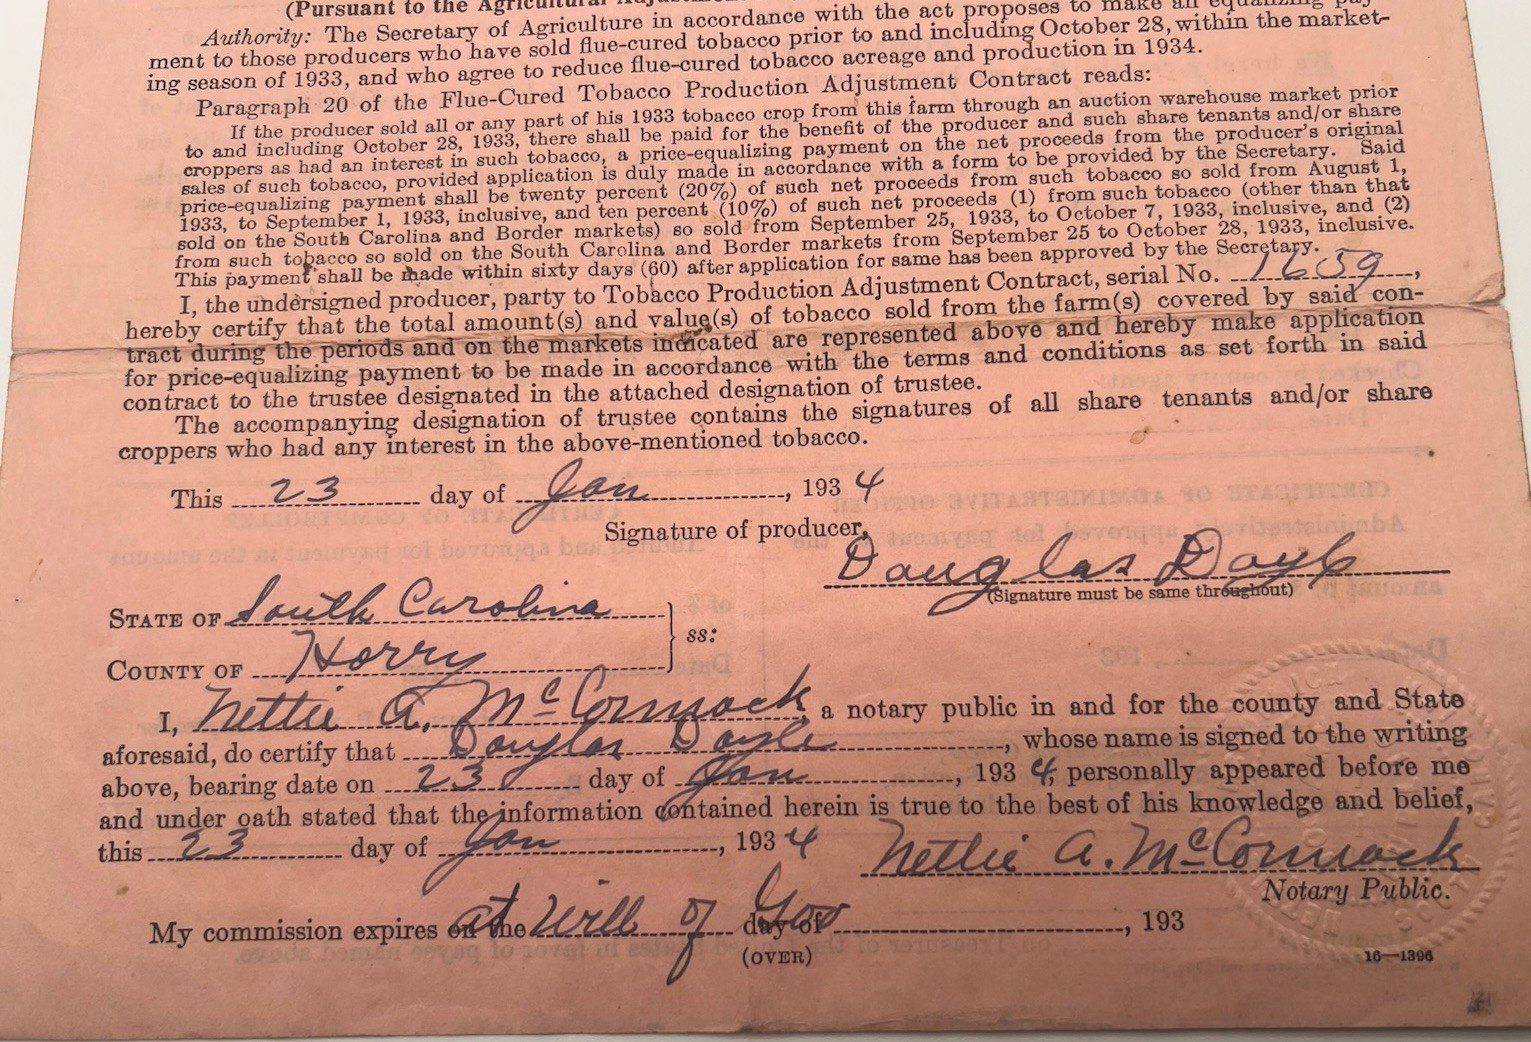 (Pursuant to the Agricultural
Authority: The Secretary of Agriculture in accordance with the act proposes to make an equalizing pay-
ment to those producers who have sold flue-cured tobacco prior to and including October 28, within the market-
ing season of 1933, and who agree to reduce flue-cured tobacco acreage and production in 1934.
Paragraph 20 of the Flue-Cured Tobacco Production Adjustment Contract reads:
If the producer sold all or any part of his 1933 tobacco crop from this farm through an auction warehouse market prior
to and including October 28, 1933, there shall be paid for the benefit of the producer and such share tenants and/or share
croppers as had an interest in such tobacco, a price-equalizing payment on the net proceeds from the producer's original
sales of such tobacco, provided application is duly made in accordance with a form to be provided by the Secretary. Said
price-equalizing payment shall be twenty percent (20%) of such net proceeds from such tobacco so sold from August 1,
1933, to September 1, 1933, inclusive, and ten percent (10%) of such net proceeds (1) from such tobacco (other than that
sold on the South Carolina and Border markets) so sold from September 25, 1933, to October 7, 1933, inclusive, and (2)
from such tobacco so sold on the South Carolina and Border markets from September 25 to October 28, 1933, inclusive.
This payment shall be made within sixty days (60) after application for same has been approved by the Secretary.
I, the undersigned producer, party to Tobacco Production Adjustment Contract, serial No. 1659,
hereby certify that the total amount(s) and value(s) of tobacco sold from the farm(s) covered by said con-
tract during the periods and on the markets indicated are represented above and hereby make application
for price-equalizing payment to be made in accordance with the terms and conditions as set forth in said
contract to the trustee designated in the attached designation of trustee.
The accompanying designation of trustee contains the signatures of all share tenants and/or share
croppers who had any interest in the above-mentioned tobacco.
This 23 day of Jan, 1934
Signature of producer,
Douglas Doyle
(Signature must be same throughout)
STATE OF South Carolina
ss:
COUNTY OF Horry
I, Nettie A. McCormack, a notary public in and for the county and State
aforesaid, do certify that Douglas Doyle, whose name is signed to the writing
above, bearing date on 23 day of Jan, 1934, personally appeared before me
and under oath stated that the information contained herein is true to the best of his knowledge and belief,
this 23 day of Jan, 1934
Nettie A. McCormack
Notary Public.
My commission expires on the at Will of Gov day of, 193
(OVER)
16—1396